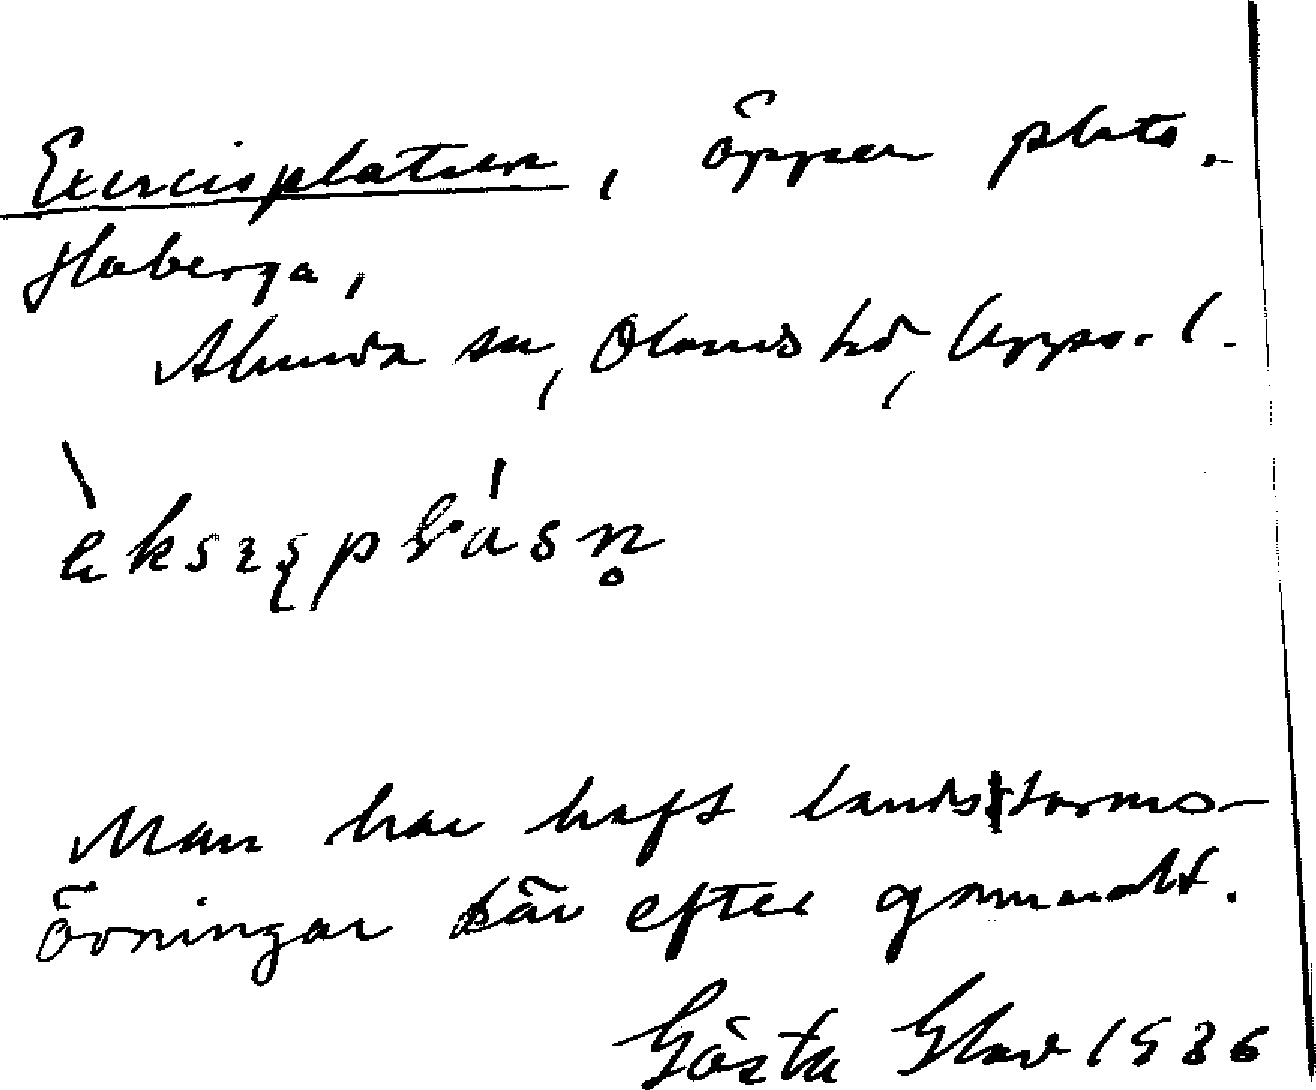 Exercisplatsen, öppen plats.
Haberga,
Almunda sn, Olands hd, Upps. l.
Man har haft landstorms-
övningar här efter gammalt.
Gösta Glav 1936